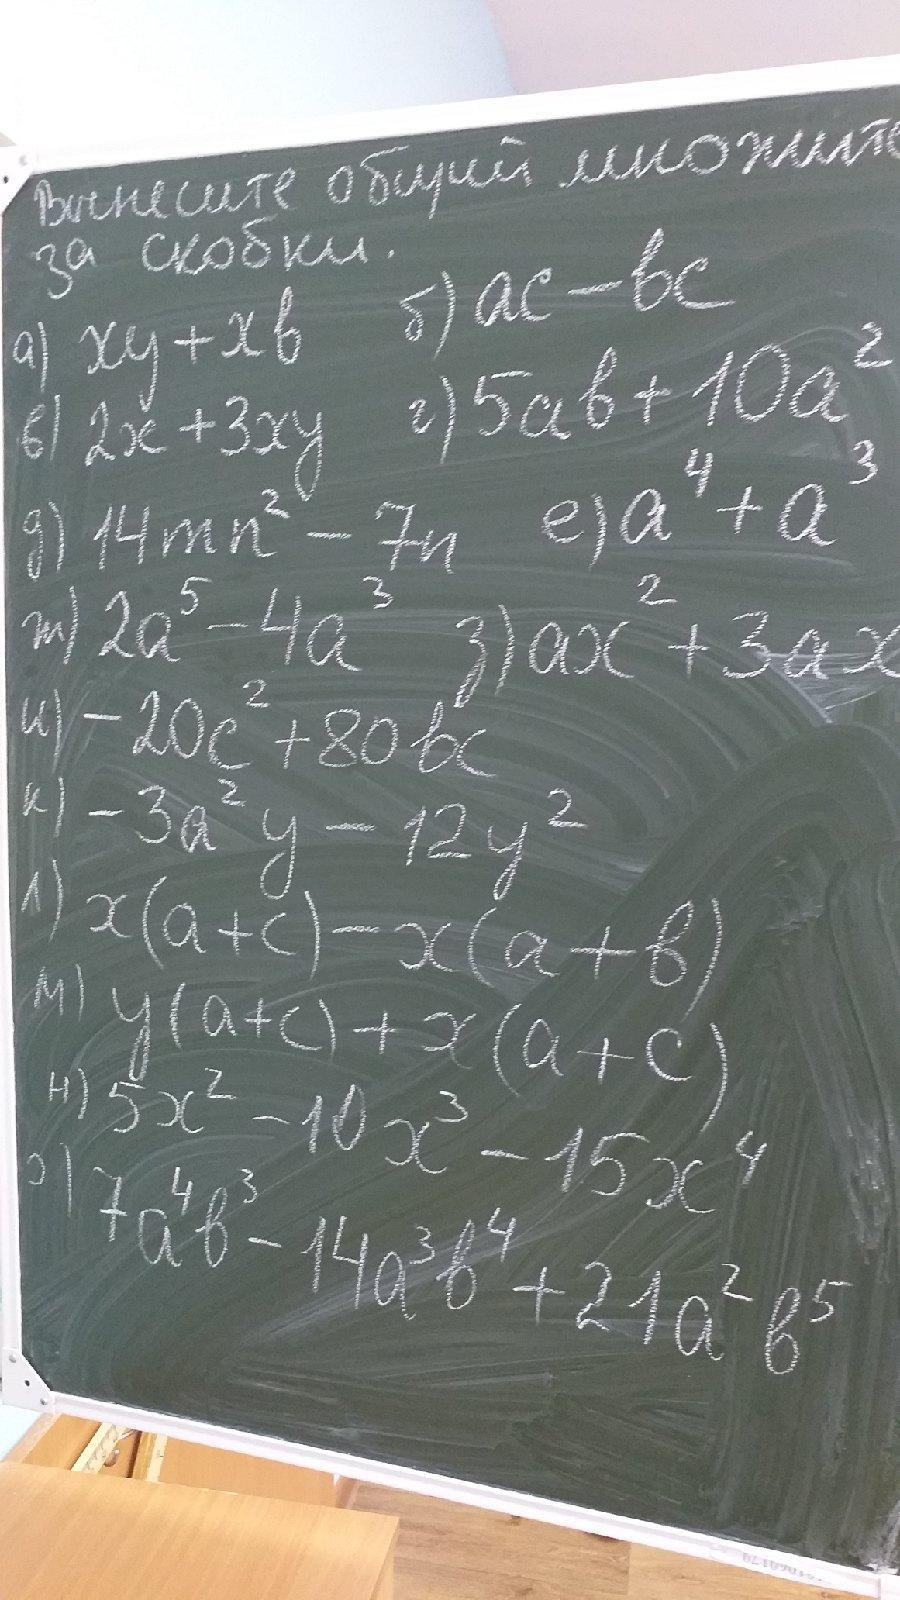 Вынесите общий множите
за скобки.
а) xy + xb б) ac - bc
в) 2x + 3xy г) 5ab + 10a²
д) 14mn² - 7n е) a⁴ + a³
ж) 2a⁵ - 4a³ з) ax² + 3ax
и) - 20c² + 80bc
к) - 3a²y - 12y²
л) x(a+c) - x(a+b)
м) y(a+c) + x(a+c)
н) 5x² - 10x³ - 15x⁴
о) 7a⁴b³ - 14a³b⁴ + 21a²b⁵